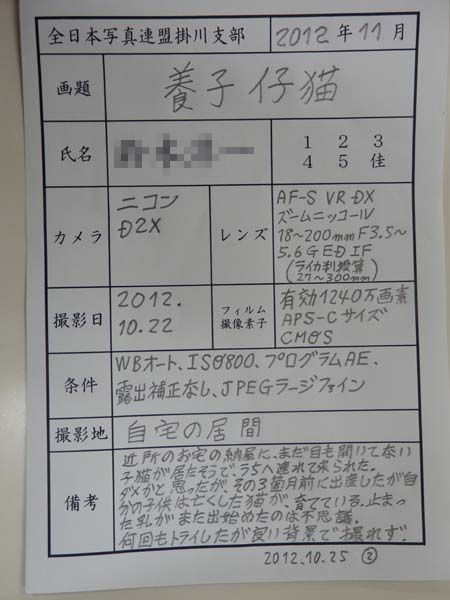 全日本写真連盟掛川支部 2012年11月
画題 養子仔猫
氏名 1 2 3
4 5 佳
カメラ ニコン
D2X
レンズ AF-S VR DX
ズームニッコール
18〜200mm F3.5〜
5.6 G ED IF
(ライカ判換算
27〜300mm)
撮影日 2012.
10.22
フィルム
撮像素子
有効1240万画素
APS-Cサイズ
CMOS
条件 WBオート、ISO800、プログラムAE、
露出補正なし、JPEGラージファイン
撮影地 自宅の居間
備考 近所のお宅の納屋に、まだ目も開いてない
子猫が居たそうで、うちへ連れて来られた。
ダメかと思ったが、その3箇月前に出産したが自
分の子供は亡くした猫が、育てている。止まっ
た乳がまた出始めたのは不思議。
何回もトライしたが良い背景で撮れず。
2012.10.25 ②